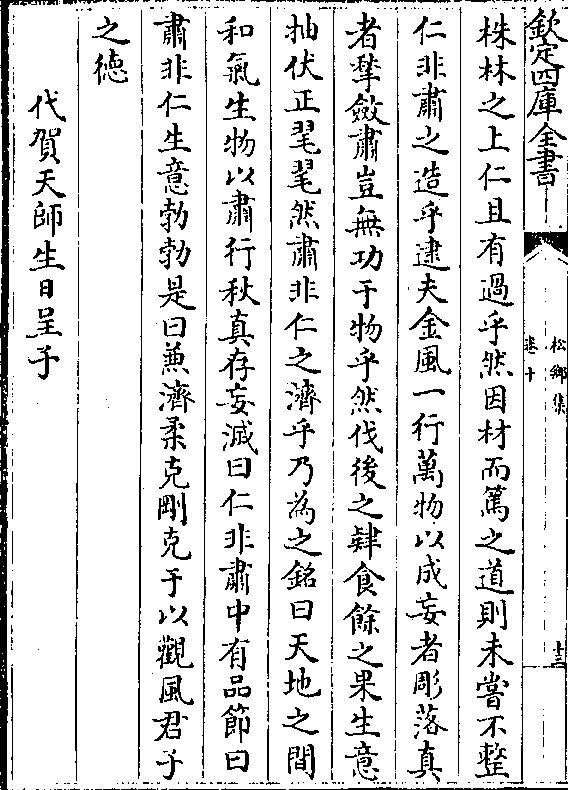 欽定四庫全書
松鄉集
卷十
十三
株林之上仁且有過乎然因材而篤之道則未嘗不整
仁非肅之造乎逮夫金風一行萬物以成妄者彫落真
者揫斂肅豈無功于物乎然伐後之肄食餘之果生意
抽伏正毣毣然肅非仁之濟乎乃為之銘曰天地之間
和氣生物以肅行秋真存妄滅曰仁非肅中有品節曰
肅非仁生意勃勃是曰兼濟柔克剛克于以觀風君子
之德
代賀天師生日呈子